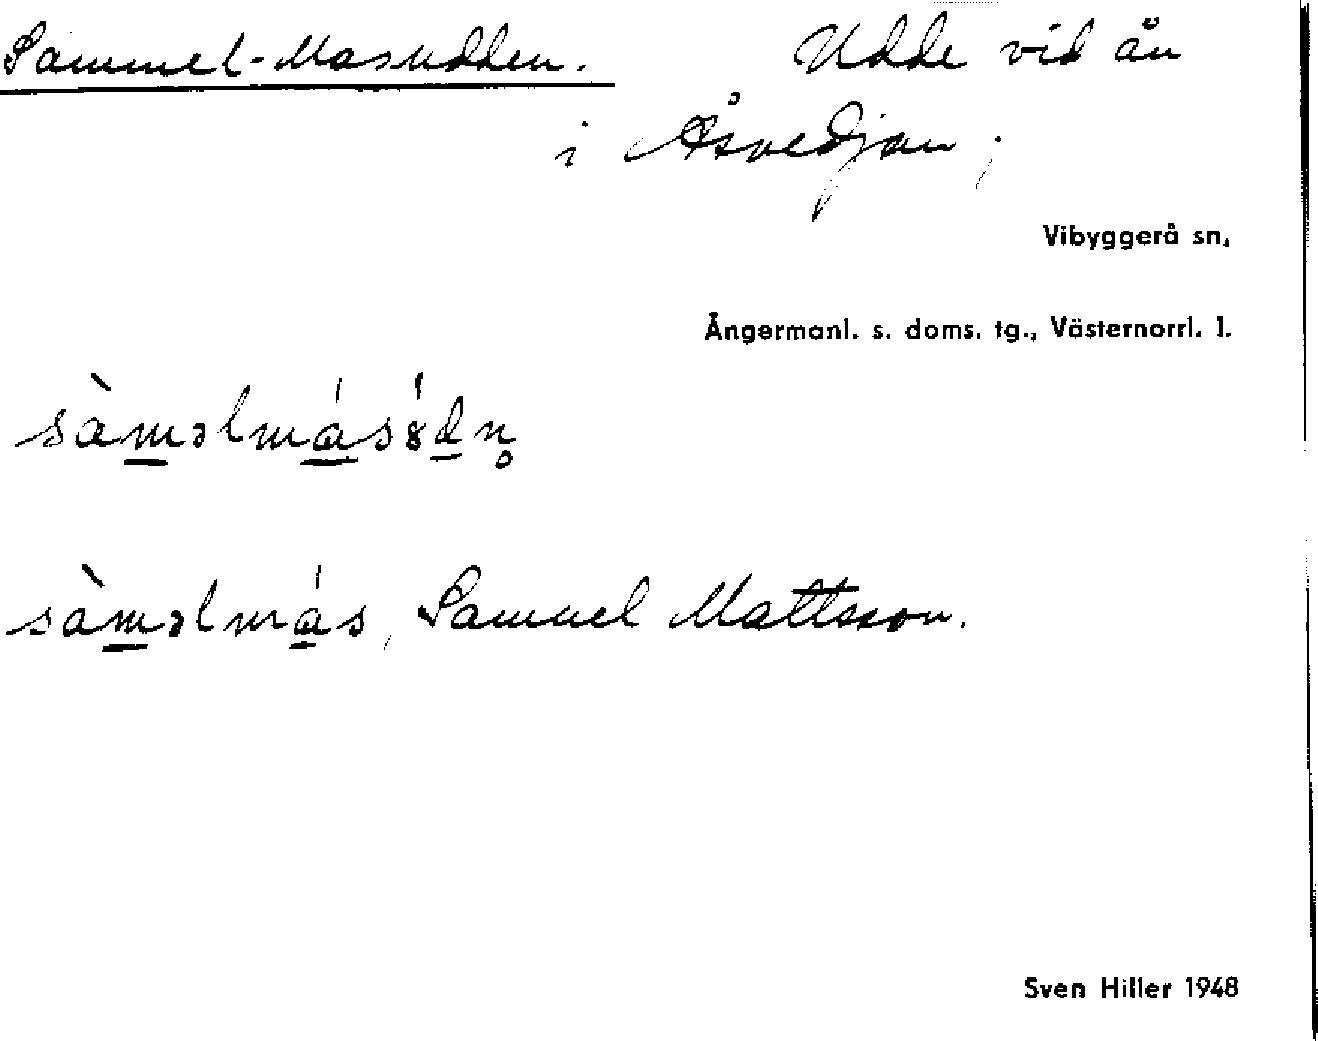 Sammel-Masudden. Udde vid ån
i Åsvedjan;
Vibyggerå sn,
Ångermanl. s. doms. tg., Västernorrl. l.
sàm̲əlmá̲s8́d̲n̥
sàm̲əlmá̲s, Samuel Mattsson.
Sven Hiller 1948